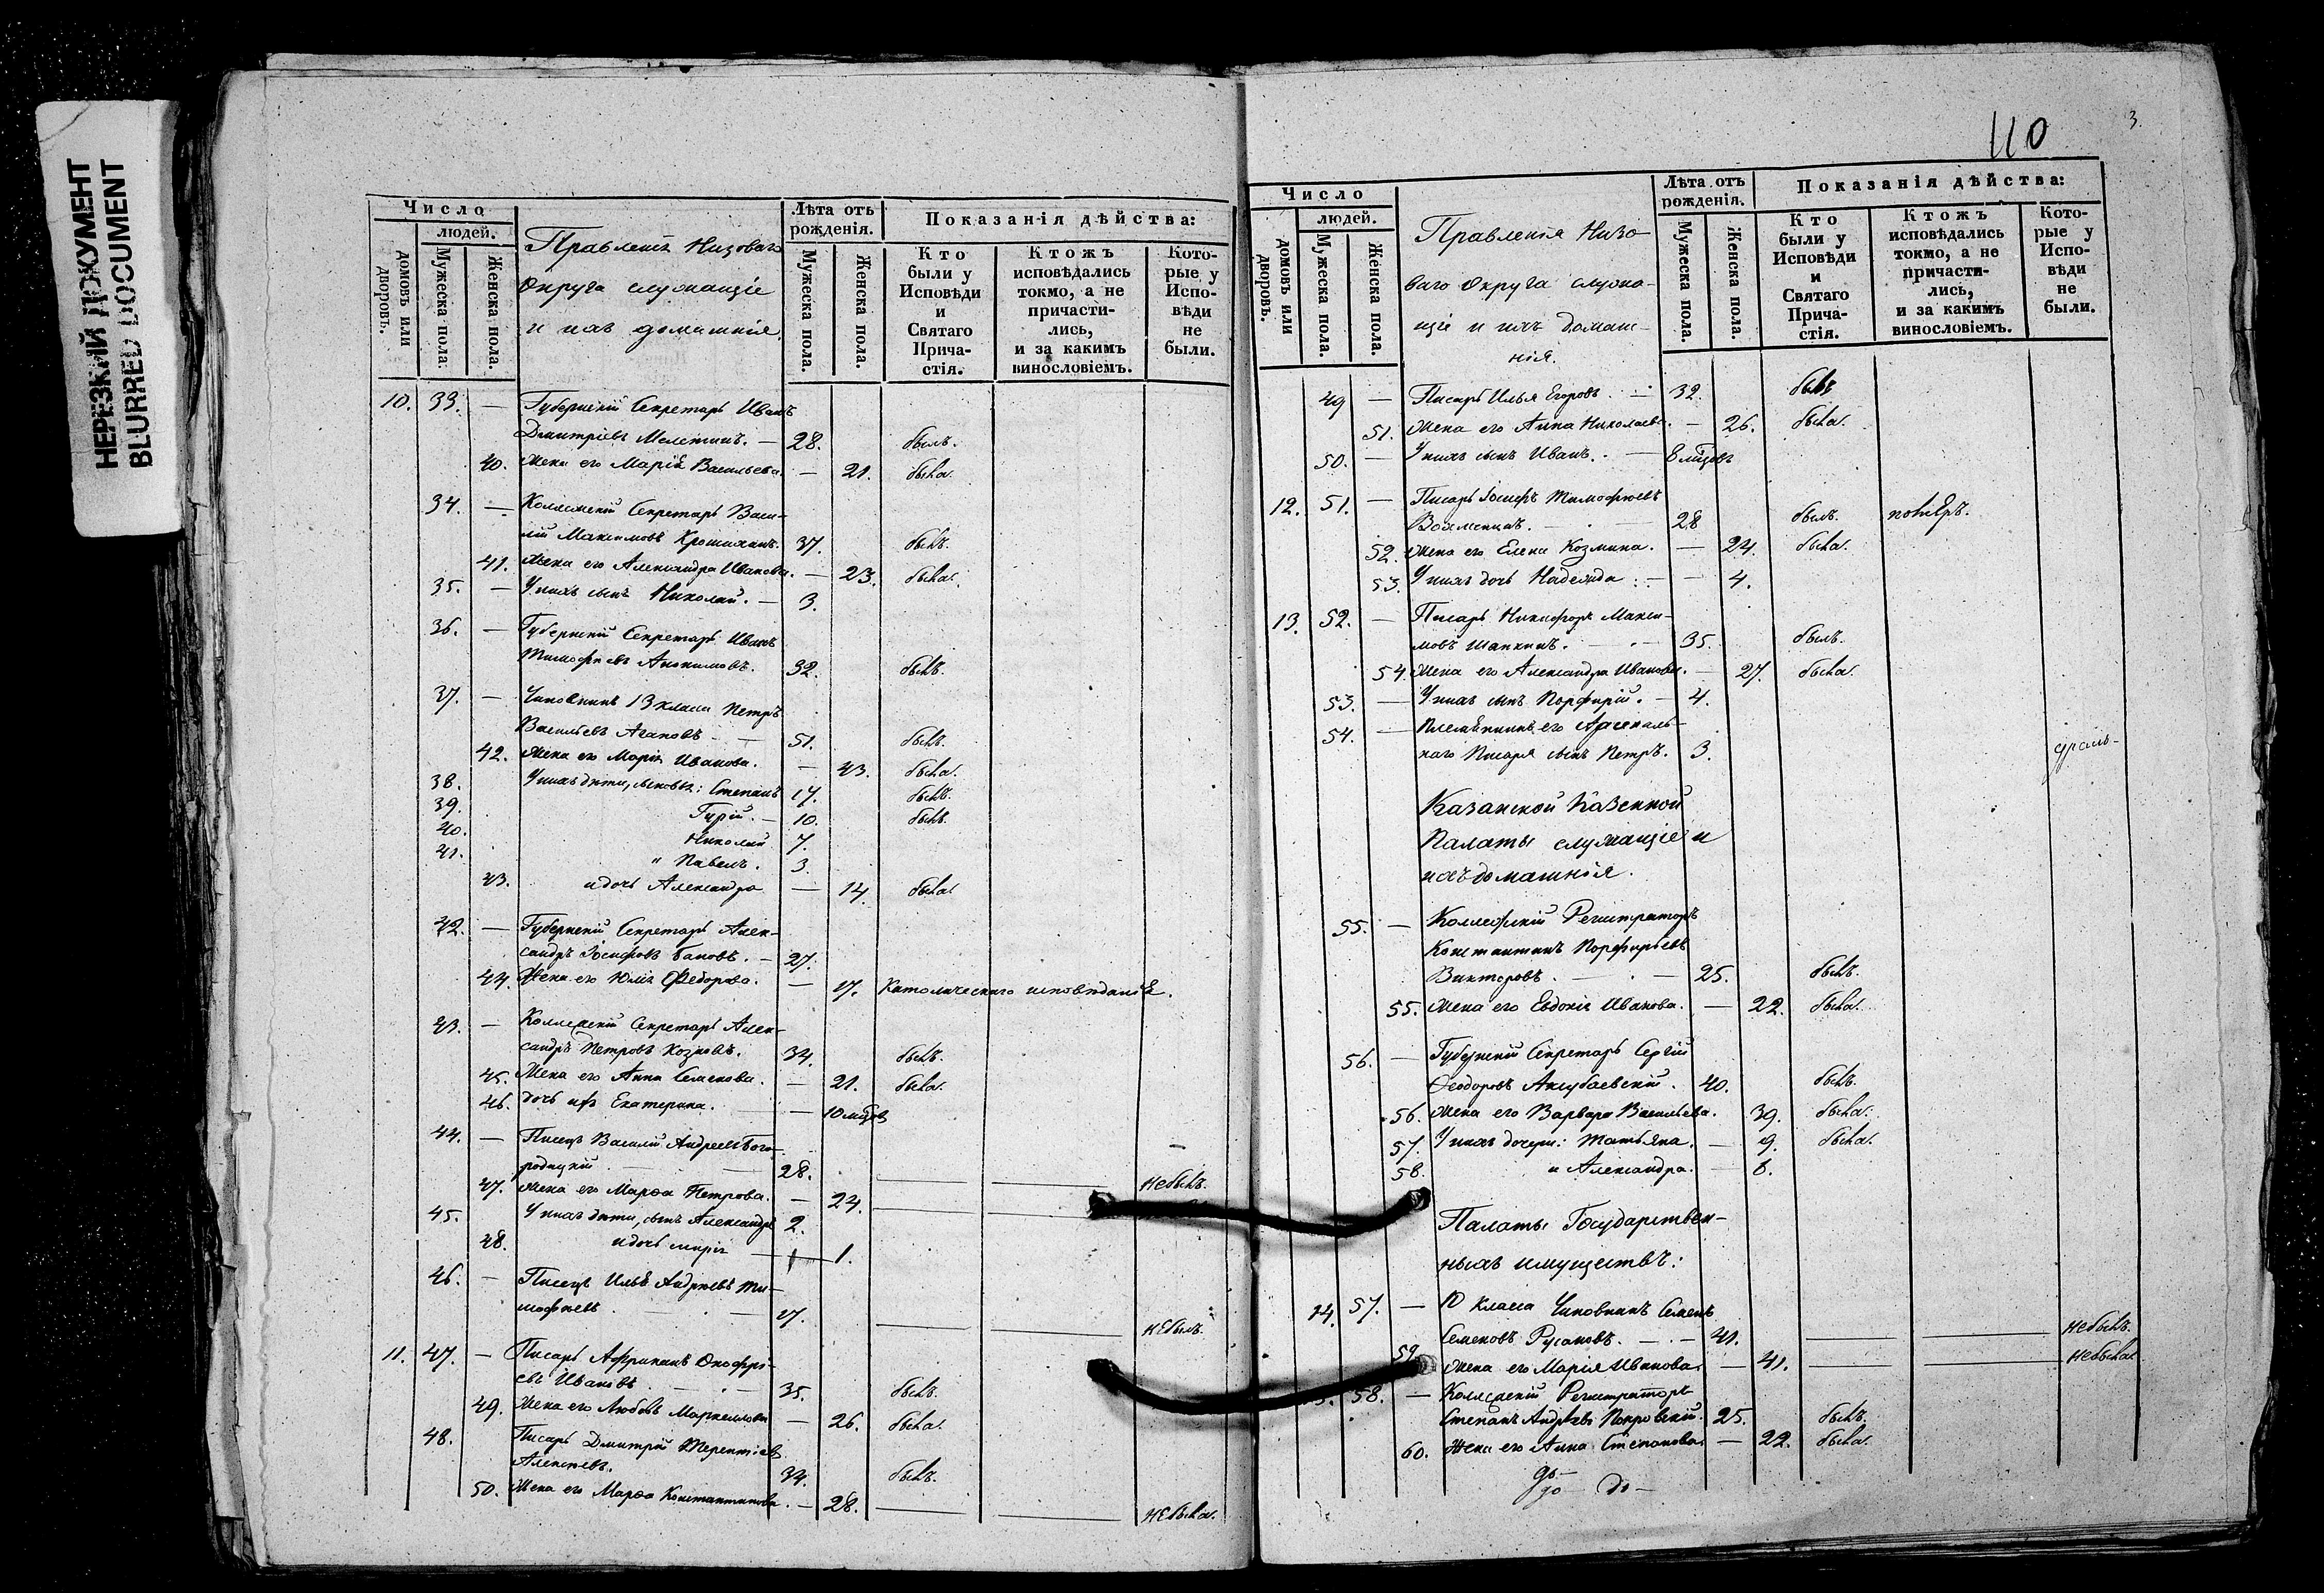 НЕРЕЗКИЙ ДОКУМЕНТ
BLURRED DOCUMENT
Число
людей.
домовъ или дворовъ.
Мужеска пола.
Женска пола.
Правленія Низоваго
Округа служащіе
и ихъ домашнія
Лѣта отъ рожденія.
Мужеска пола.
Женска пола.
Показанія дѣйства:
Кто были у Исповѣди и Святаго Прича- стія.
Ктожъ исповѣдались токмо, а не причасти- лись, и за какимъ винословіемъ.
Кото- рые у Испо- вѣди не были.
10. 33. — Губернскій Секретарь Иванъ
Дмитріевъ — 28. былъ.
40. Жена его Марія Васильева — 21. была.
34. — Коллежскій Секретарь Васи-
лій Максимовъ 37. былъ.
41. Жена его Александра Иванова. — 23. была.
35. — У нихъ сынъ Николай. — 3.
36. — Губернскій Секретарь Иванъ
Тимофѣевъ 32. былъ.
37. — Чиновникъ 13 класса Петръ
Васильевъ Агаповъ — 51. былъ.
42. Жена его Марія Иванова. — 43. была.
38. У нихъ дѣти, сыновья: Степанъ 17. былъ.
39. Гурій. — 10. былъ.
40. Николай 7.
41. " Павелъ. 3.
43. и дочь Александра — 14. была.
42. — Губернскій Секретарь Алек-
сандръ Іосифовъ — 27.
44. Жена его Юлія Федорова. — 17. Католическаго исповѣданія.
43. — Коллежскій Секретарь Алек-
сандръ Петровъ Козловъ. 34. былъ.
45. Жена его Анна Семенова. — 21. была.
46. Дочь ихъ Екатерина. — 10 мѣсцов
44. — Писецъ Василій Андреевъ Бого-
родицкій — 28. небылъ.
47. Жена его Марѳа Петрова. — 24.
45. У нихъ дѣти, сынъ Александръ 2.
48. и дочь Марія — 1.
46. — Писецъ Илья Андреевъ Ти-
мофѣевъ — 17. небылъ.
11. 47. — Писарь Африканъ Онофрі-
евъ Ивановъ — 35. былъ.
49. Жена его Любовь Маркеллова — 26. была.
48. Писарь Дмитрій Терентіевъ
Алексѣевъ. 34. былъ.
50. Жена его Марѳа Константинова. — 28. небыла.
110
3.
Число
людей.
домовъ или дворовъ.
Мужеска пола.
Женска пола.
Правленія Низо-
ваго Округа служа-
щіе и ихъ домаш-
нія.
Лѣта отъ рожденія.
Мужеска пола
Женска пола.
Показанія дѣйства:
Кто были у Исповѣди и Святаго Прича- стія.
Ктожъ исповѣдались токмо, а не причасти- лись, и за какимъ винословіемъ.
Кото- рые у Испо- вѣди не были.
49 — Писарь Илья Егоровъ. — 32. былъ
51. Жена его Анна Николаева. — 26. была.
50. — У нихъ сынъ Иванъ. — 8 мѣсцовъ
12. 51. — Писарь Іосифъ Тимофѣевъ
28 былъ.
52. Жена его Елена Козмина. — 24. была.
53. У нихъ дочь Надежда: — 4.
13. 52. — Писарь Никифоръ Макси-
мовъ Шапкинъ. — 35. былъ.
54. Жена его Александра Иванова. — 27. была.
53. — У нихъ сынъ Порфирій. — 4.
54. — Племянникъ его Арсеналь-
наго Писаря сынъ Петръ. 3.
Казанской Казенной
Палаты служащіе и
ихъ домашнія.
55. — Коллежскій Регистраторъ
Константинъ Порфирьевъ
Викторовъ. — 25. былъ.
55. Жена его Евдокія Иванова. — 22. была.
56. — Губернскій Секретарь Сергій
Ѳеодоровъ Аксубаевскій. 40. былъ.
56. Жена его Варвара Васильева. 39. была.
57. У нихъ дочери: Татьяна. — 9. была.
58. и Александра. — 6.
Палаты Государствен-
ныхъ имуществъ:
14. 57. — 10 класса Чиновникъ Семенъ
Семеновъ Русановъ. — 41. небылъ.
59. Жена его Марія Иванова. — 41. небыла.
58. — Коллежскій Регистраторъ
Степанъ Андреевъ Покровскій. 25. былъ.
60. Жена его Анна Степанова. — 22. была.